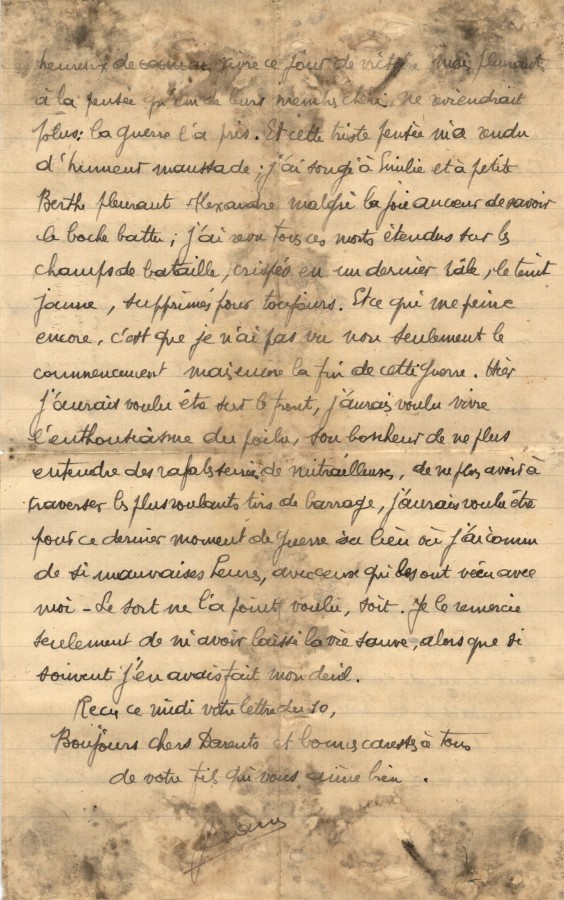 heureux de vivre ce jour de victoire mais pleurant
à la pensée qu'un de leurs membres chéri ne reviendrait
plus : la guerre l'a pris. Et cette triste pensée m'a rendu
d'humeur maussade ; j'ai songé à Emilie et à petite
Berthe pleurant Alexandre malgré la joie au cœur de savoir
le boche battu ; j'ai revu tous ces morts étendus sur les
champs de bataille, crispés en un dernier râle, le teint
jaune, supprimés pour toujours. Et ce qui me peine
encore, c'est que je n'ai pas vu non seulement le
commencement mais encore la fin de cette guerre. Hier
j'aurais voulu être sur le front, j'aurais voulu vivre
l'enthousiasme du poilu, son bonheur de ne plus
entendre des rafales serrées de mitrailleuses, de ne plus avoir à
traverser les plus roulants tirs de barrage, j'aurais voulu être
pour ce dernier moment de guerre au lieu où j'ai connu
de si mauvaises heures, avec ceux qui les ont vécu avec
moi - Le sort ne l'a point voulu, soit. Je le remercie
seulement de m'avoir laissé la vie sauve, alors que si
souvent j'en avais fait mon deuil.
Reçu ce midi votre lettre du 10,
Bonjours chers Parents et bonnes caresses à tous
de votre fils qui vous aime bien.